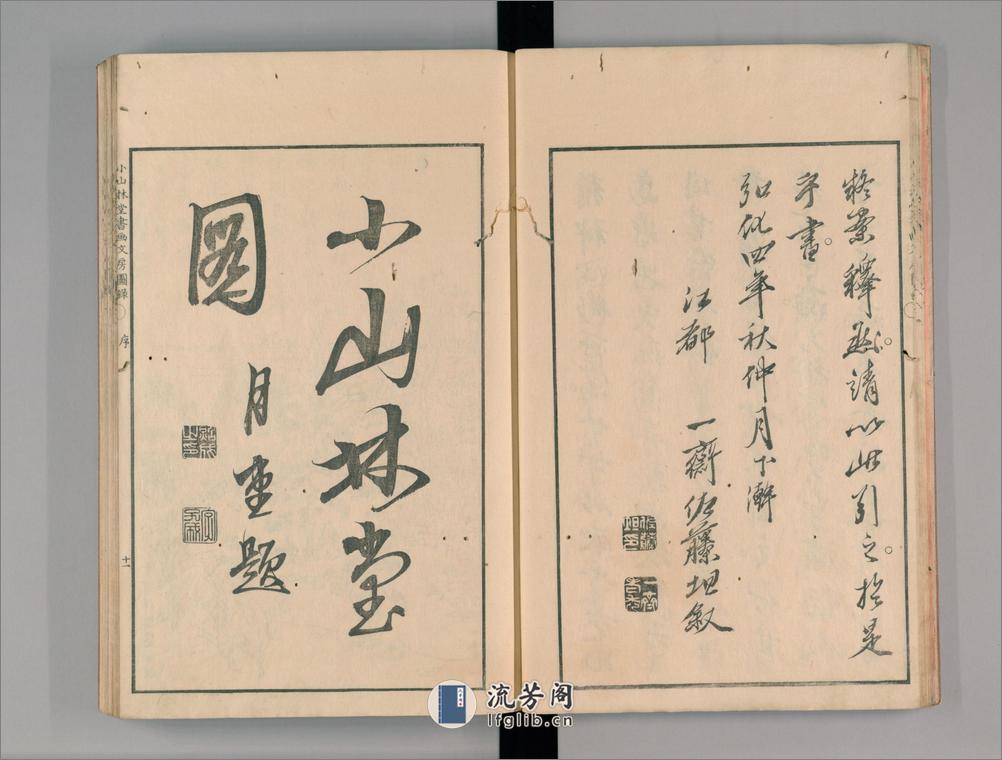 釋然。請以此引之。於是
乎書。
弘化四年秋仲月下澣
江都 一齋佐藤坦敘
小山林堂
圖
月 題
小山林堂書画文房圖録 序
十一
流芳阁
lfglib.cn